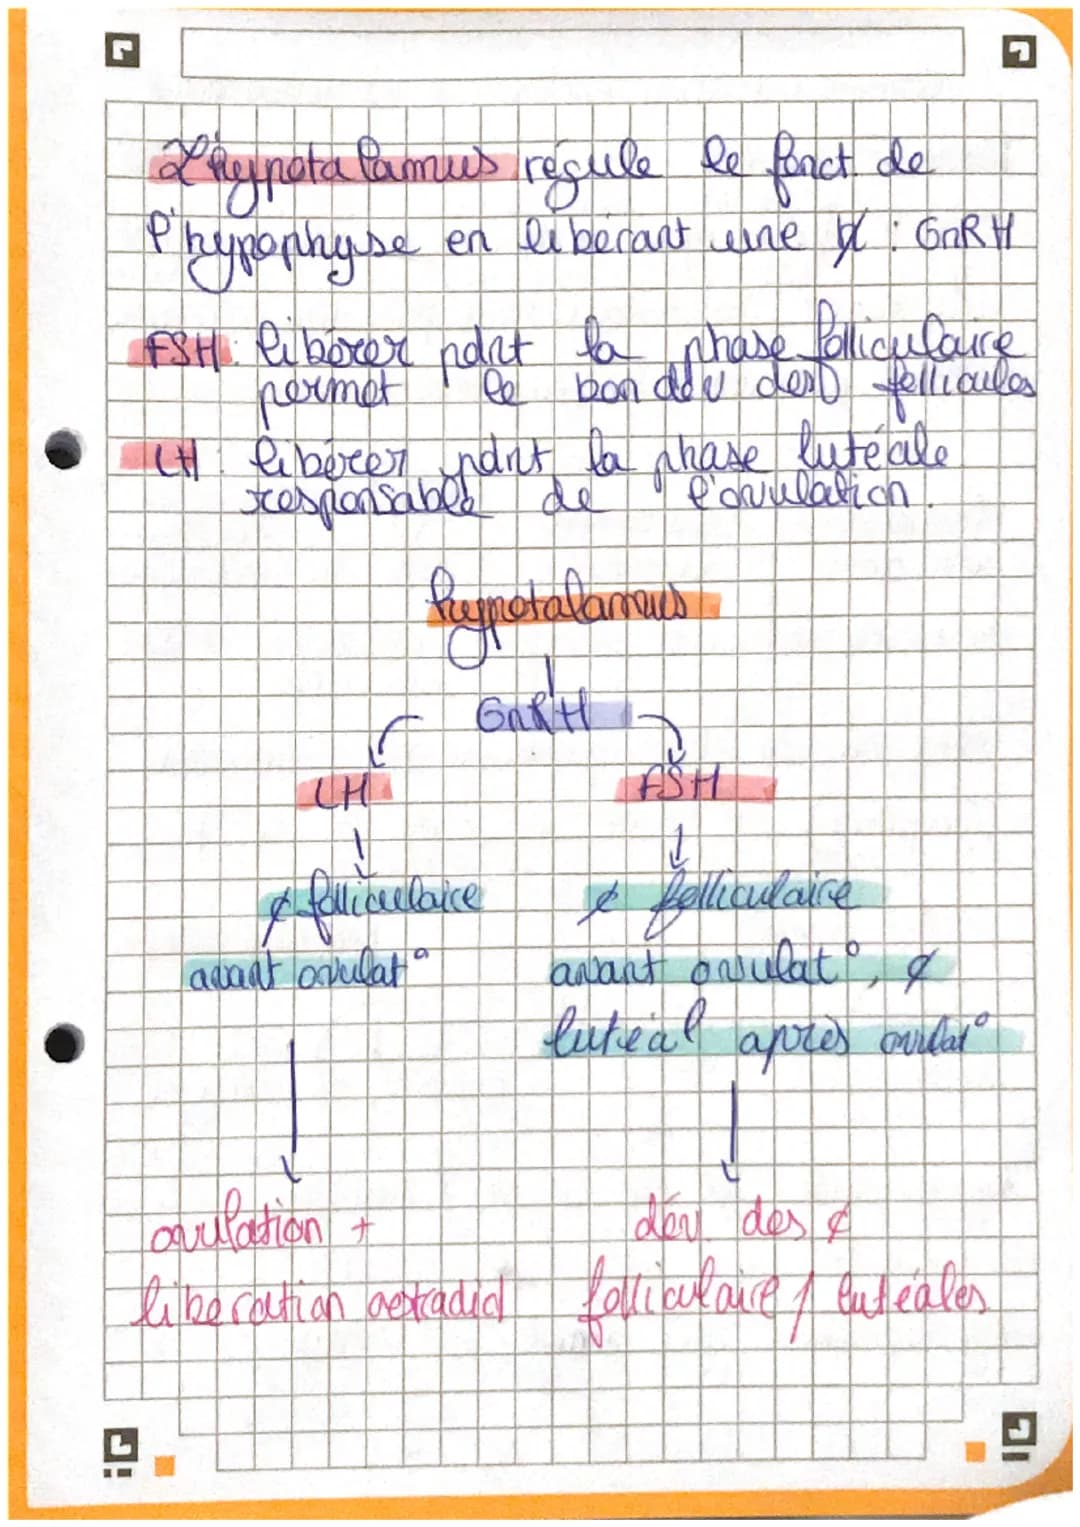 L'hypotalamus régule le fonct. de
l'hypophyse en libérant une : GnRH
FSH : libérer pdnt la phase folliculaire
permet le bon dév des follicules
LH : libérer pdnt la phase lutéale
responsable de l'ovulation.
hypotalamus
GnRH
LH FSH
¢ folliculaire ¢ folliculaire
avant ovulat° avant ovulat°, ¢
lutéal après ovulat°
ovulation + dév. des ¢
libération oestradiol folliculaire / lutéales